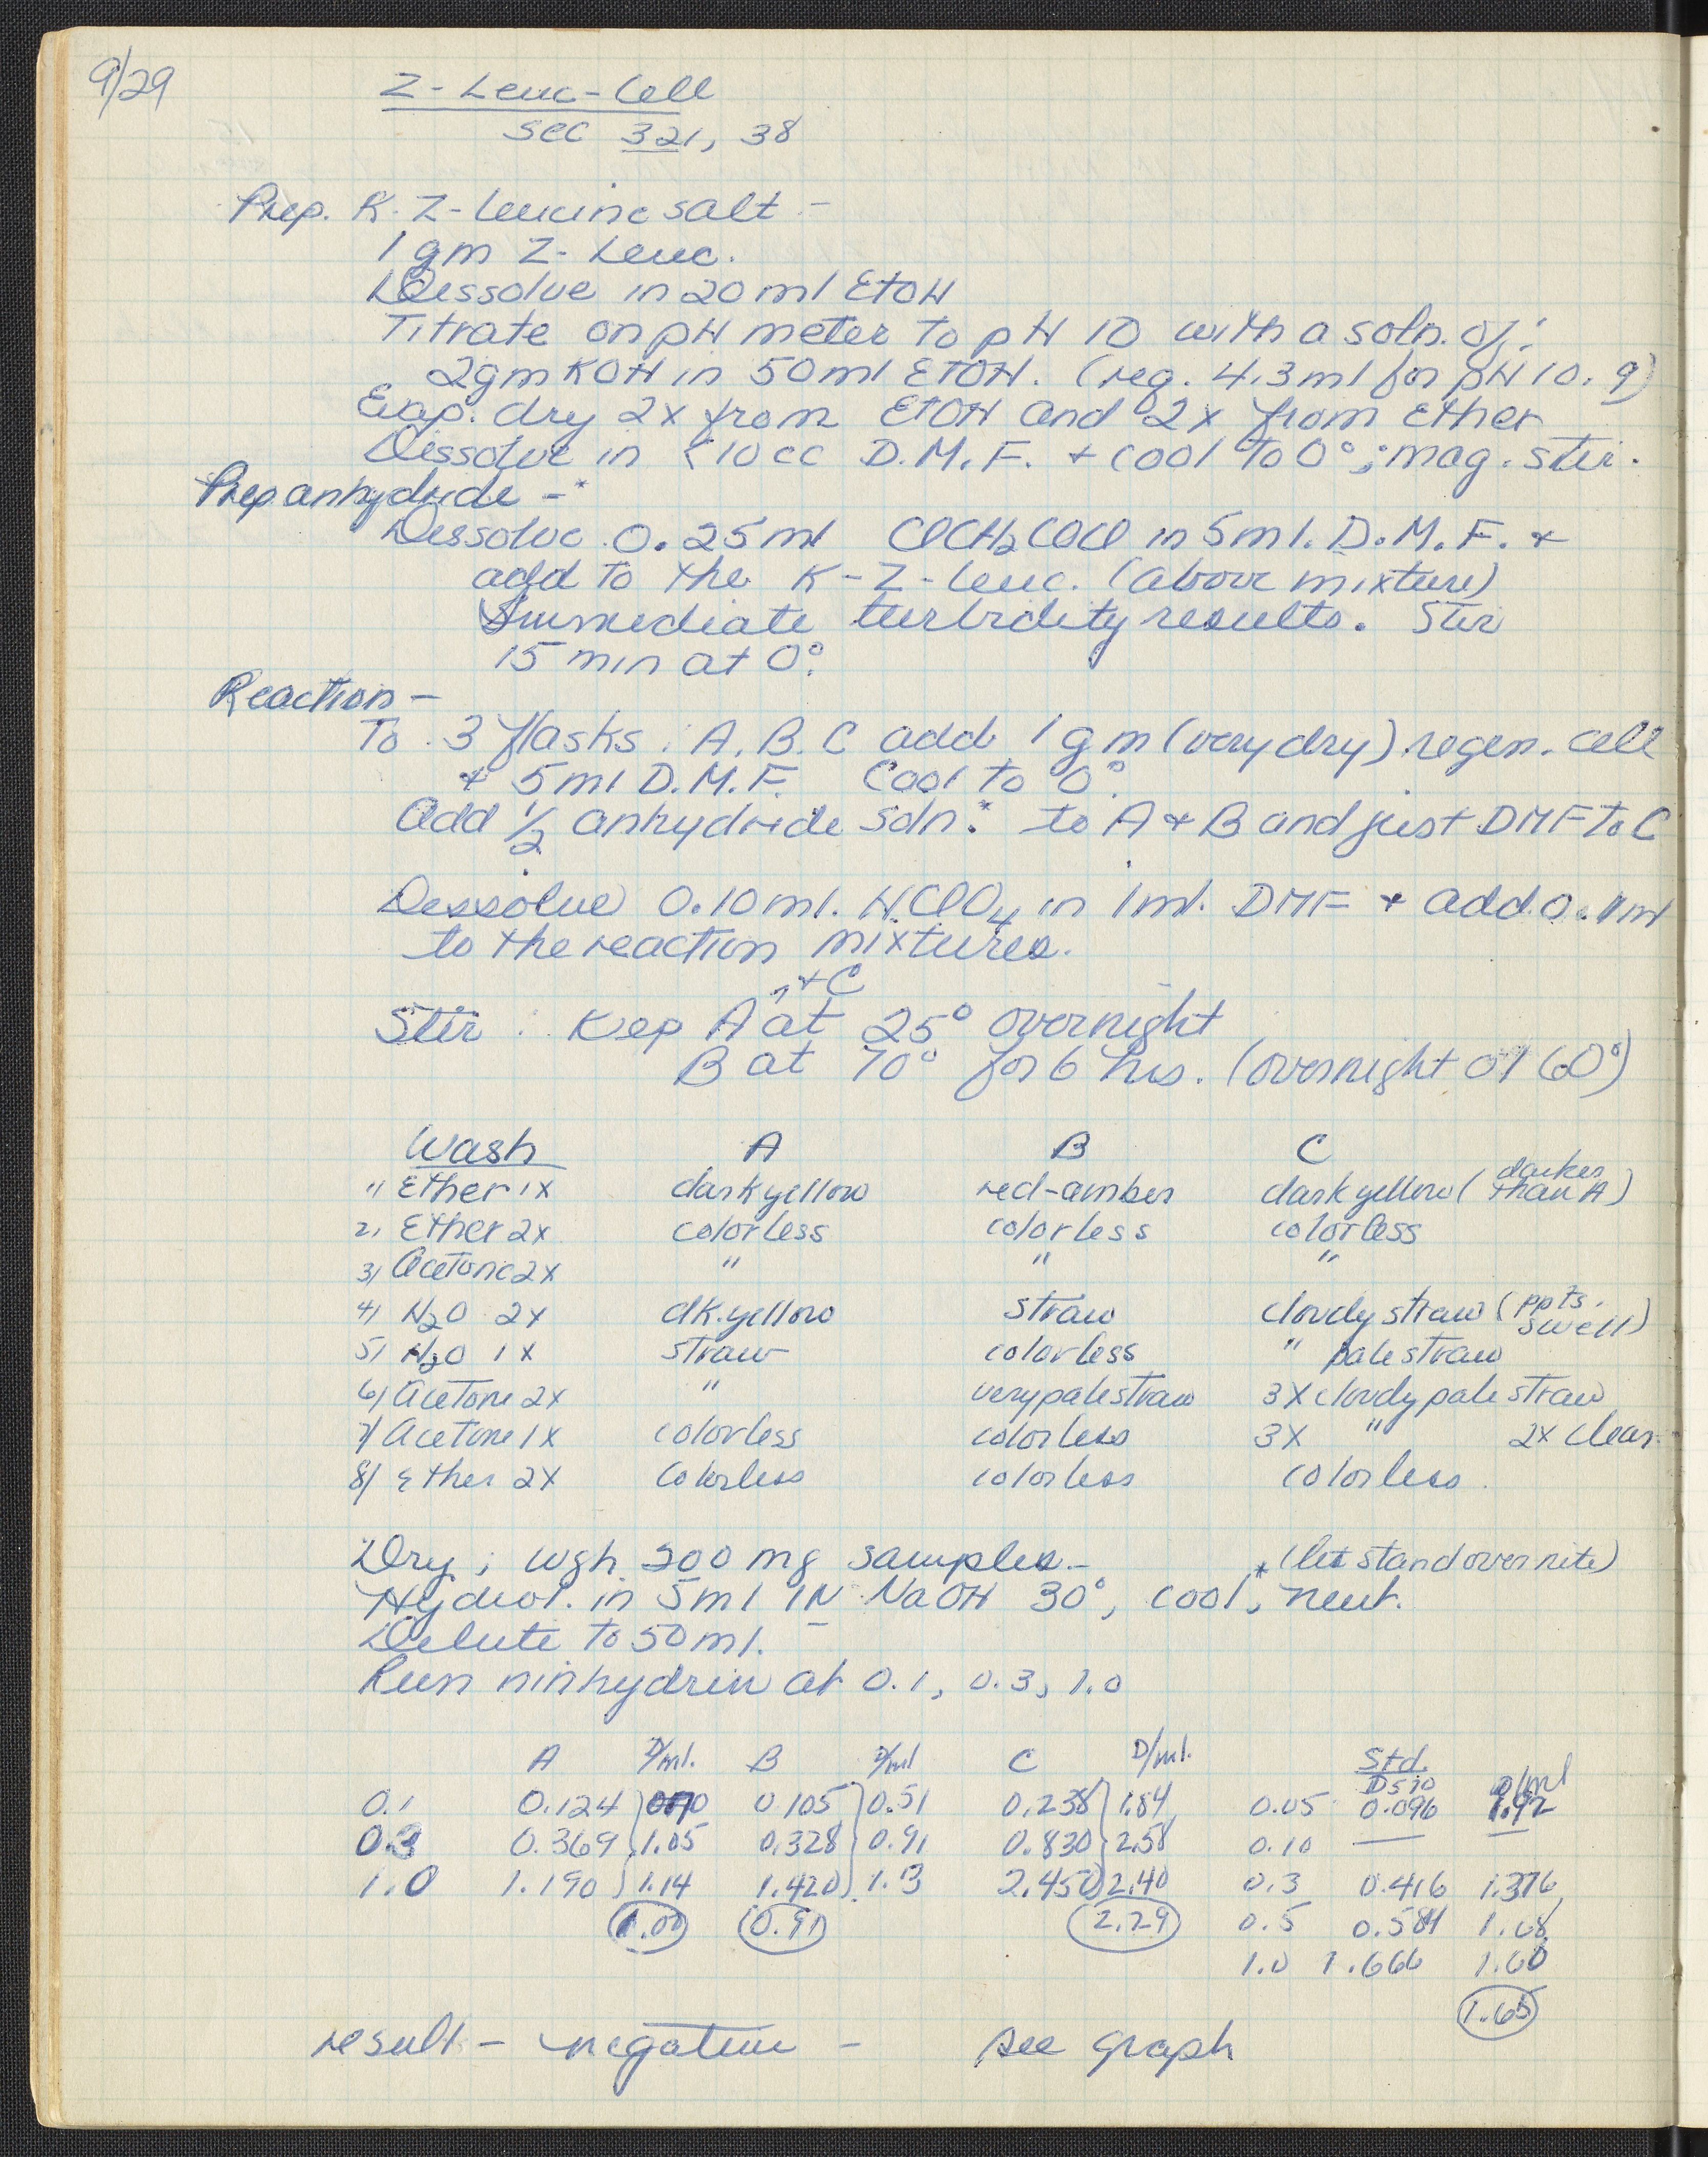 9/29
Z-Leuc-Cell
sec 321, 38
Prep. K-Z-Leucine salt -
1 gm Z-Leuc.
Dissolve in 20 ml EtOH
Titrate on pH meter to pH 10 with a soln. of:
2gm KOH in 50 ml EtOH. (req. 4.3 ml for pH 10.9)
Evap. dry 2x from EtOH and 2x from Ether
Dissolve in 10cc D.M.F. + cool to 0°; mag. stir.
Prep anhydride -*
Dissolve 0.25 ml ClCH2COCl in 5 ml. D.M.F. +
add to the K-Z-Leuc. (above mixture)
Immediate turbidity results. Stir
15 min at 0°.
Reaction -
To 3 flasks: A, B, C add 1 gm (very dry) regen. cell
+ 5 ml D.M.F. Cool to 0°.
Add 1/2 anhydride soln.* to A + B and just DMF to C
Dissolve 0.10 ml. HClO4 in 1 ml. DMF + add 0.1 ml
to the reaction mixtures.
Stir: Keep A + C at 25° overnight
B at 70° for 6 hrs. (overnight at 60°)
Wash A B C
1) Ether 1x dark yellow red-amber dark yellow (darker than A)
2) Ether 2x colorless colorless colorless
3) Acetone 2x " " "
4) H2O 2x dk. yellow straw cloudy straw (ppts. swell)
5) H2O 1x straw colorless " pale straw
6) Acetone 2x " very pale straw 3x cloudy pale straw
7) Acetone 1x colorless colorless 3x " 2x clear
8) Ether 2x colorless colorless colorless
Dry; wgh 200 mg samples - *(let stand over nite)
Hydrol. in 5 ml 1N NaOH 30°, cool,* neut.
Dilute to 50 ml.
Run ninhydrin at 0.1, 0.3, 1.0
A D/ml. B D/ml C D/ml. Std. D570 D/ml
0.1 0.124 0.105 0.51 0.238 1.84 0.05 0.096 1.92
0.3 0.369 1.05 0.328 0.91 0.830 2.58 0.10 — —
1.0 1.190 1.14 1.420 1.3 2.450 2.40 0.3 0.416 1.376
1.00 0.91 2.29 0.5 0.584 1.68
1.0 1.666 1.60
1.65
result - negative - see graph